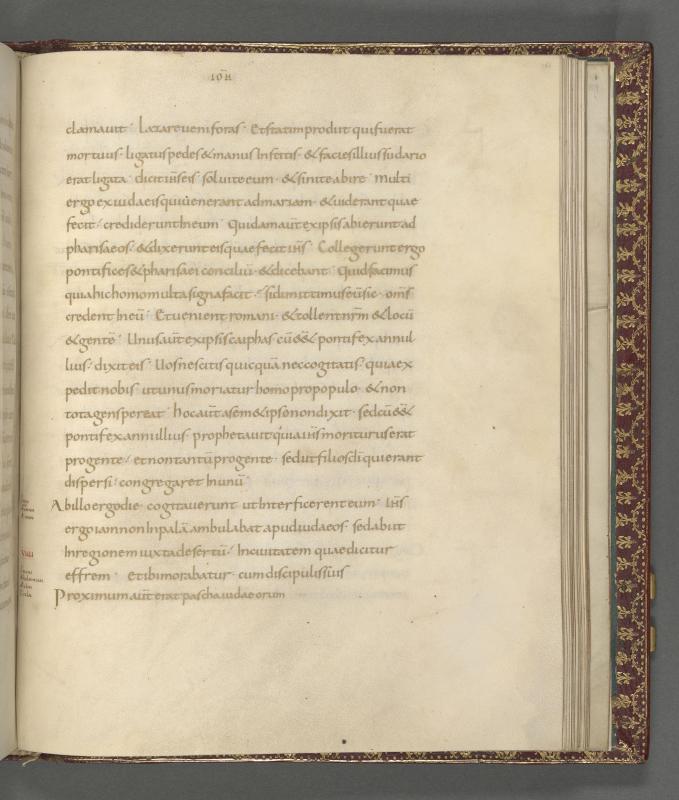 IOH̄
clamauit· Lazare ueni foras· Et statim prodiit qui fuerat
mortuus· ligatus pedes & manus Institis· & facies illius sudario
erat ligata· dicit ih̄s eis· soluite eum· & sinite abire· multi
ergo ex iudaeis qui uenerant ad mariam· & uiderant quae
fecit· crediderunt In eum· Quidam aūt ex ipsis abierunt ad
pharisaeos· & dixerunt eis quae fecit ih̄s· Collegerunt ergo
pontifices & pharisaei conciliū· & dicebant· Quid facimus
quia hic homo multa signa facit· si dimittimus eū sic· om̄s
credent In eū· Et uenient romani· & tollent nr̄m & locū
& gentē· Unus aūt ex ipsis caiphas cū ess& pontifex anni il
lius· dixit eis· Uos nescitis quicquā nec cogitatis· quia ex
pedit nobis· ut unus moriatur homo pro populo· & non
tota gens pereat· hoc aūt a sem&ipso non dixit· sed cū ess&
pontifex anni illius· prophetauit quia ih̄s moriturus erat
pro gente· et non tantū pro gente· sed ut filios dī qui erant
dispersi· congregaret In unū·
Ab illo ergo die· cogitauerunt ut Interficerent eum· Ih̄s
ergo iam non In palā ambulabat apud iudaeos· sed abiit
In regionem iuxta desertū· In ciuitatem quae dicitur
effrem· et ibi morabatur· cum discipulis suis
Proximum aūt erat pascha iudaeorum